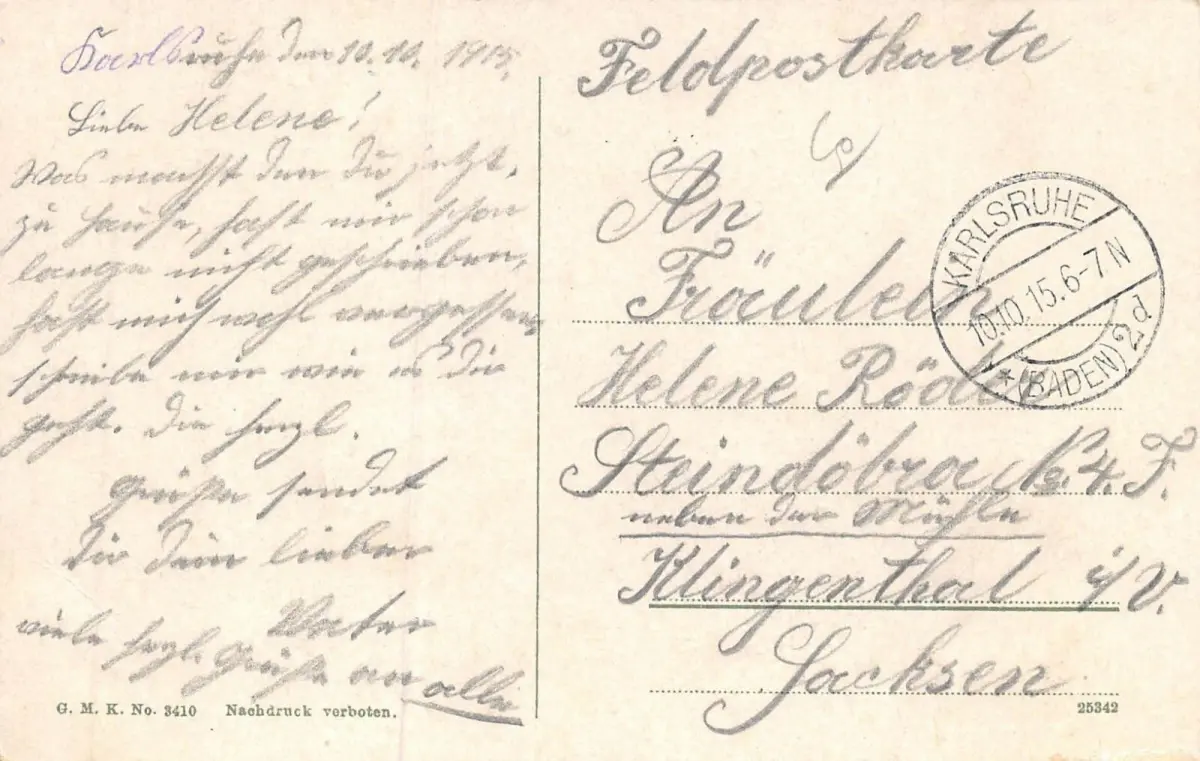 Karlsruhe den 10.10. 1915.
Liebe Helene!
Was machst den du jetzt,
zu Hause, hast mir schon
lange nicht geschrieben,
hast mich wohl vergessen,
schreibe mir wie es dir
geht. Die herzl.
Grüße sendet
dir dein lieber
Vater
viele herzl. Grüße an alle
G. M. K. No. 3410 Nachdruck verboten.
Feldpostkarte
An
Fräulein
Helene Röder
Steindöbra No. 4. F.
neben der Mühle
Klingenthal i/V.
Sachsen
25342
KARLSRUHE
10.10.15.6-7N
*(BADEN) 2d